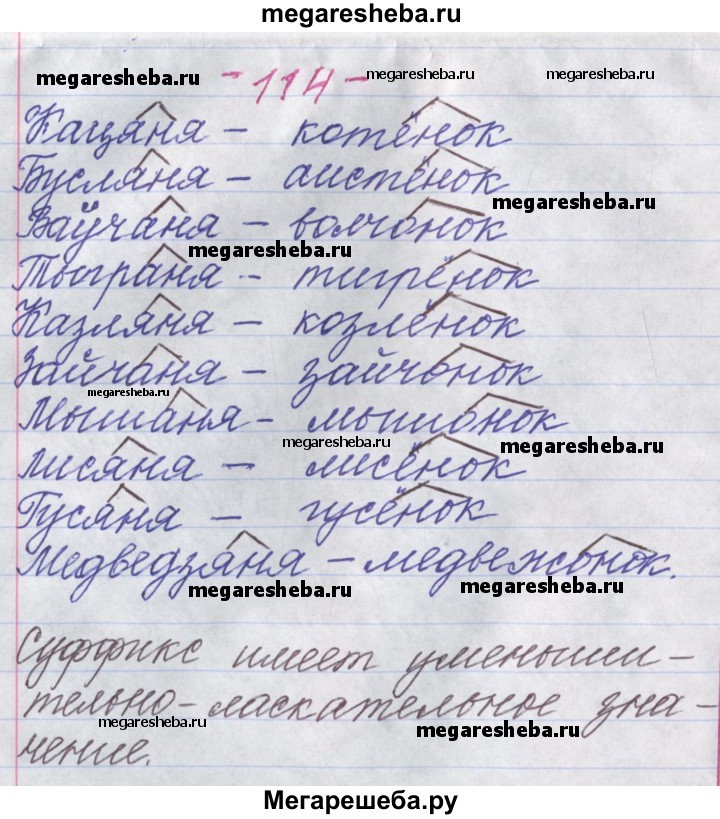 megaresheba.ru
megaresheba.ru - 114 - megaresheba.ru megaresheba.ru
Кацяня – котёнок
Бусляня – аистёнок
megaresheba.ru
Ваўчаня – волчонок
megaresheba.ru
Тыграня – тигрёнок
Казляня – козлёнок
Зайчаня – зайчонок
megaresheba.ru
Мышаня – мышонок
megaresheba.ru megaresheba.ru
Лисяня – лисёнок
Гусяня – гусёнок
Медведзяня – медвежонок.
megaresheba.ru megaresheba.ru
Суффикс имеет уменьши-
тельно-ласкательное зна-
megaresheba.ru megaresheba.ru
чение.
Мегарешеба.ру